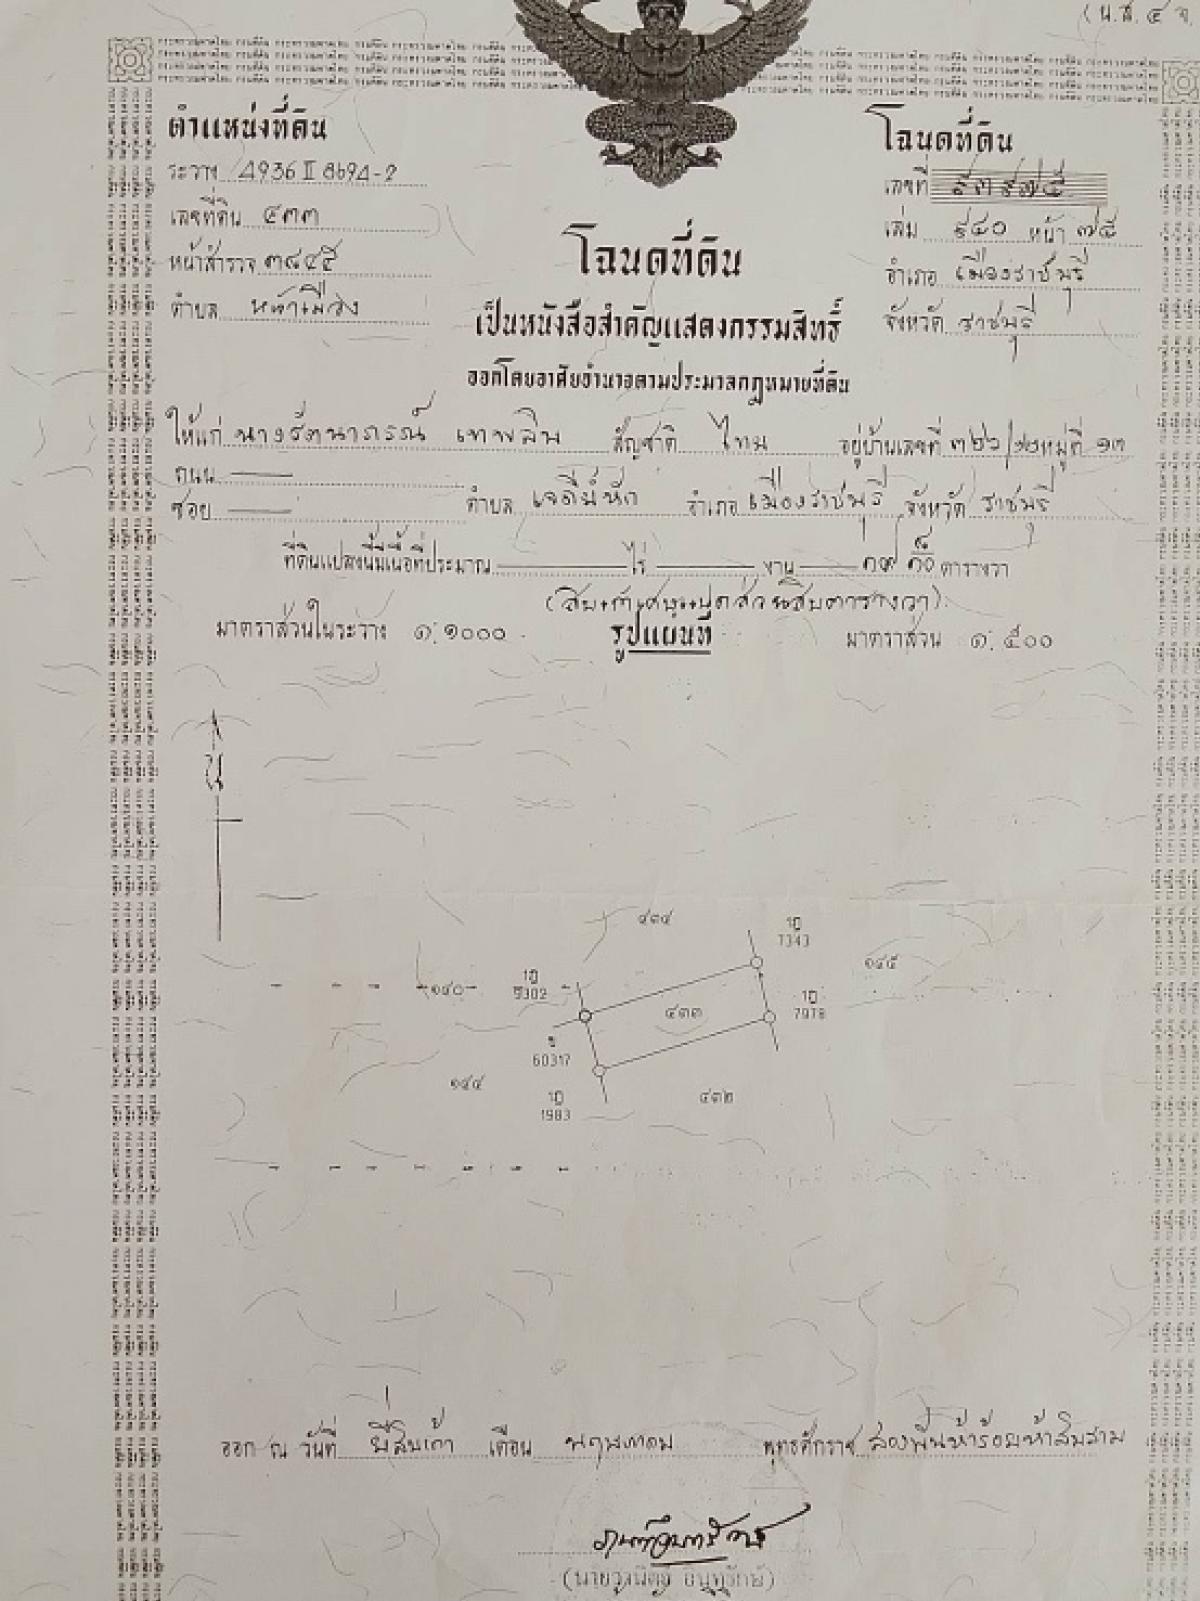 (น.ส. ๔ จ
ตำแหน่งที่ดิน
ระวาง 4936 II 8694-2
เลขที่ดิน ๔๓๓
หน้าสำรวจ ๓๘๔๕
ตำบล หน้าเมือง
โฉนดที่ดิน
เลขที่
เล่ม ๕๔๐ หน้า ๗๕
อำเภอ เมืองราชบุรี
จังหวัด ราชบุรี
โฉนดที่ดิน
เป็นหนังสือสำคัญแสดงกรรมสิทธิ์
ออกโดยอาศัยอำนาจตามประมวลกฎหมายที่ดิน
ให้แก่ นางรัตนาภรณ์ เทพลิบ สัญชาติ ไทย อยู่บ้านเลขที่ หมู่ที่ ๑๓
ถนน
ซอย ตำบล เจดีย์หัก อำเภอ เมืองราชบุรี จังหวัด ราชบุรี
ที่ดินแปลงนี้มีเนื้อที่ประมาณ ไร่ งาน ๑๙ ๘/๑๐ ตารางวา
(สิบเก้าเศษแปดส่วนสิบตารางวา)
มาตราส่วนในระวาง ๑:๑๐๐๐ รูปแผนที่ มาตราส่วน ๑:๕๐๐
น
๔๓๔
1ฎ
7343
๑๔๕
๑๔๐
1ฎ
5302
๔๓๓
1ฎ
7978
ข
60317
๑๔๔
1ฎ
1983
๔๓๒
ออก ณ วันที่ ยี่สิบเก้า เดือน พฤษภาคม พุทธศักราช สองพันห้าร้อยห้าสิบสาม